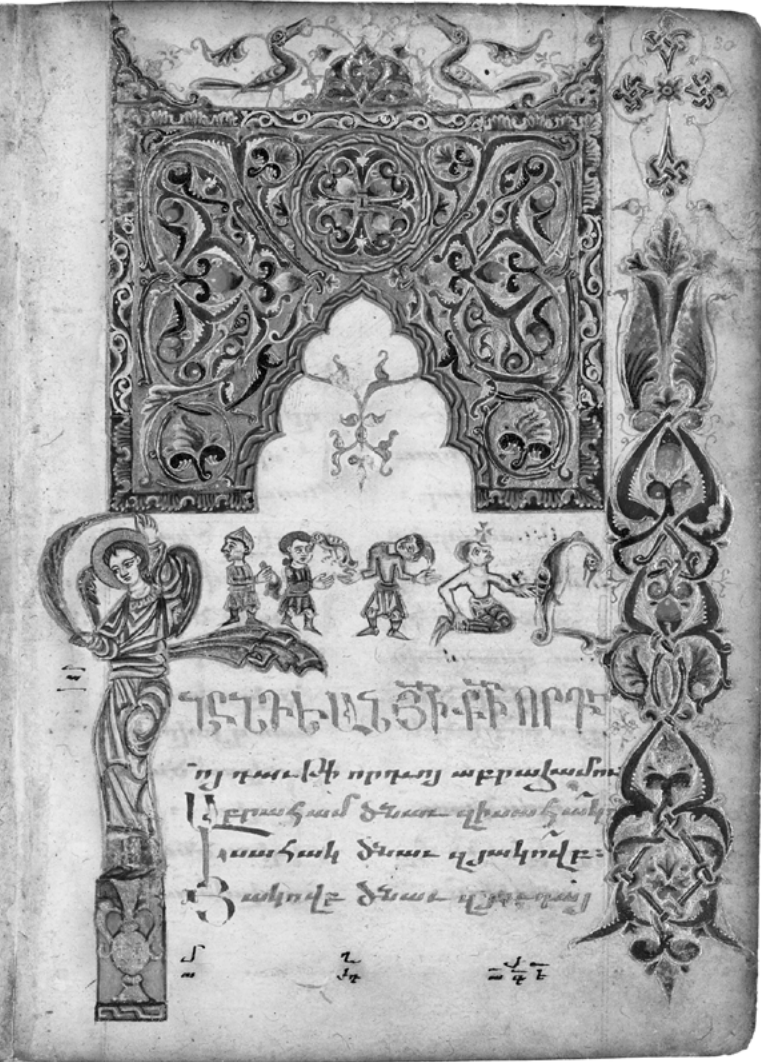 ԳԻՐՔ Ծ
ՆԸՆԴԵԱՆ ՅԻ ՔԻ ՈՐԴՒ
ոյ դաւթի որդւոյ աբրահամու
Աբրահամ ծնաւ զիսահակ։
Իսահակ ծնաւ զյակովբ։
Յակովբ ծնաւ զյուդայ